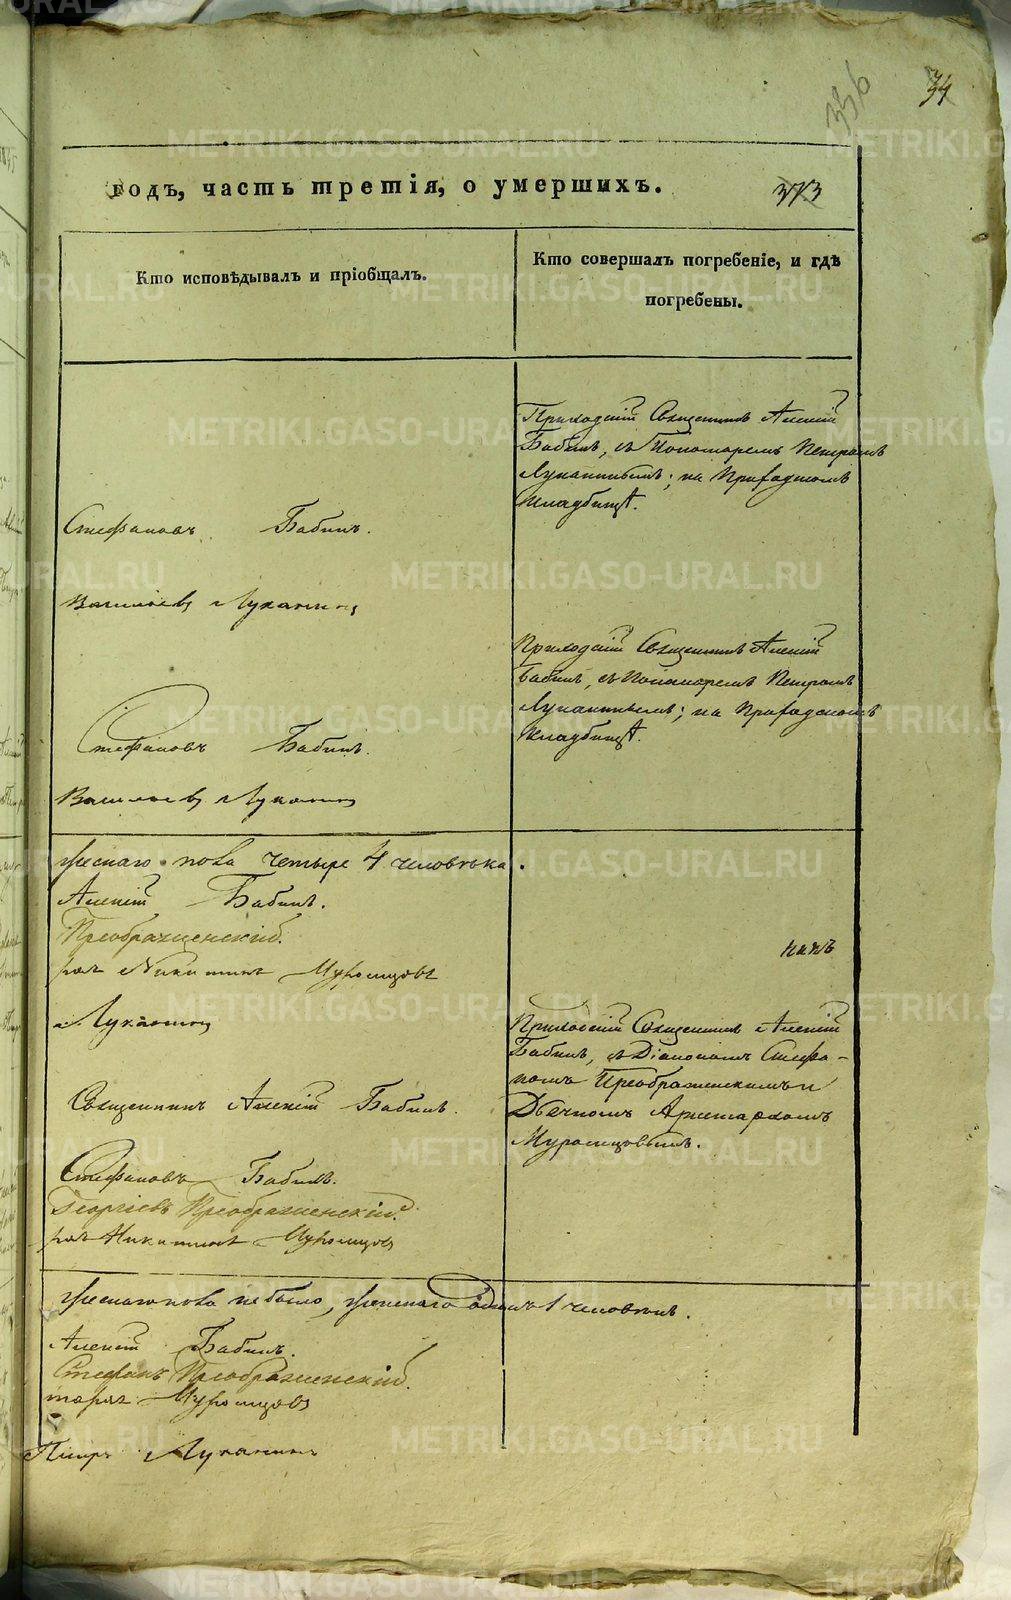 336
34
годъ, часть третія, о умершихъ.
373
Кто исповѣдывалъ и пріобщалъ.
Кто совершалъ погребеніе, и гдѣ
погребены.
Приходскій Священникъ Алексій
Бабинъ, съ Пономаремъ Петромъ
Луканинымъ; на Приходскомъ
Кладбищѣ.
Стефановъ Бабинъ.
Васильевъ Луканинъ
Приходскій Священникъ Алексій
Бабинъ, съ Пономаремъ Петромъ
Луканинымъ; на Приходскомъ
Кладбищѣ.
Стефановъ Бабинъ.
Васильевъ Луканинъ
женскаго пола четыре 4 человѣка.
Алексій Бабинъ.
Преображенскій.
рхъ Никитинъ Муромцовъ
Луканинъ
Приходскій Священникъ Алексій
Бабинъ, съ Діакономъ Стефа-
номъ Преображенскимъ и
Дьячкомъ Аристархомъ
Муромцовымъ.
Священникъ Алексій Бабинъ.
Стефановъ Бабинъ.
Георгіевъ Преображенскій.
рхъ Никитинъ Муромцовъ
мужескаго пола не было, женскаго одинъ 1 человѣкъ.
Алексій Бабинъ.
Стефанъ Преображенскій.
тархъ Муромцовъ
Петръ Луканинъ
METRIKI.GASO-URAL.RU